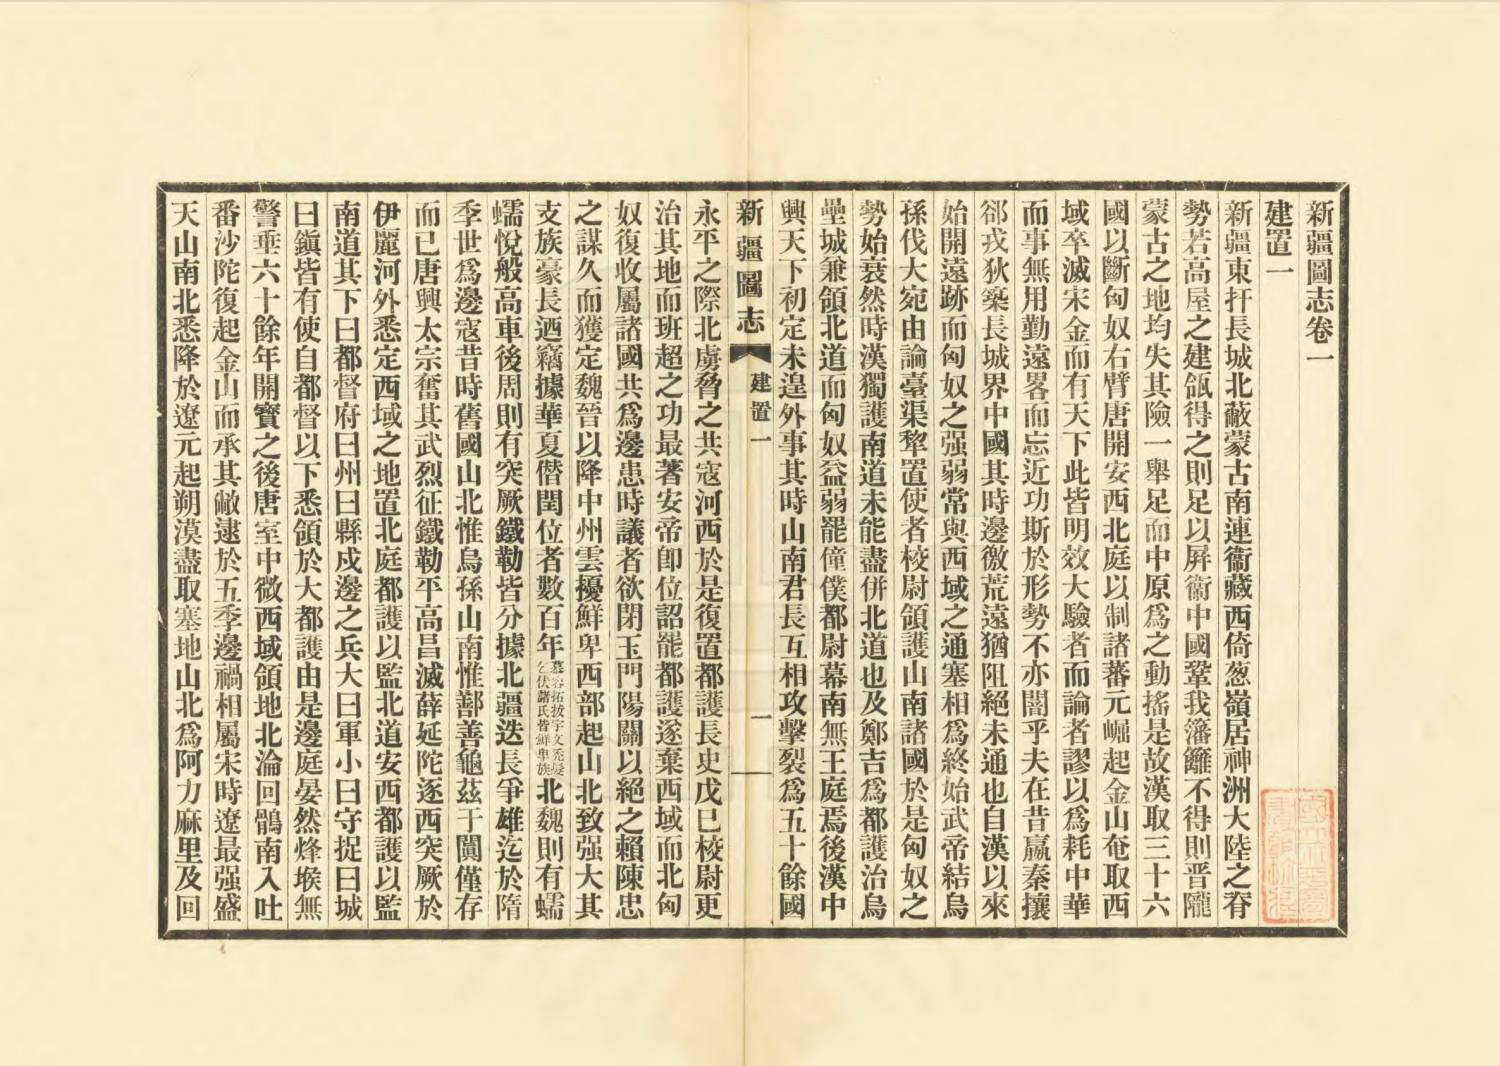 新疆圖志卷一
建置一
新疆東扞長城北蔽蒙古南連衞藏西倚葱嶺居神洲大陸之脊
勢若高屋之建瓴得之則足以屛衞中國鞏我藩籬不得則晋隴
蒙古之地均失其險一舉足而中原爲之動搖是故漢取三十六
國以斷匈奴右臂唐開安西北庭以制諸蕃元崛起金山奄取西
域卒滅宋金而有天下此皆明效大驗者而論者謬以爲耗中華
而事無用勤遠畧而忘近功斯於形勢不亦闇乎夫在昔嬴秦攘
郤戎狄築長城界中國其時邊徼荒遠猶阻絕未通也自漢以來
始開遠跡而匈奴之强弱常與西域之通塞相爲終始武帝結烏
孫伐大宛由論臺渠犂置使者校尉領護山南諸國於是匈奴之
勢始衰然時漢獨護南道未能盡併北道也及鄭吉爲都護治烏
壘城兼領北道而匈奴益弱罷僮僕都尉幕南無王庭焉後漢中
興天下初定未遑外事其時山南君長互相攻擊裂爲五十餘國
新疆圖志
建置一
一
永平之際北虜脅之共寇河西於是復置都護長史戊巳校尉更
治其地而班超之功最著安帝卽位詔罷都護遂棄西域而北匈
奴復收屬諸國共爲邊患時議者欲閉玉門陽關以絕之賴陳忠
之謀久而獲定魏晉以降中州雲擾鮮卑西部起山北致强大其
支族豪長迺竊據華夏僭閏位者數百年慕容拓拔宇文禿髮乞伏諸氏皆鮮卑族北魏則有蠕
蠕悅般高車後周則有突厥鐵勒皆分據北疆迭長爭雄迄於隋
季世爲邊寇昔時舊國山北惟烏孫山南惟鄯善龜茲于闐僅存
而已唐興太宗奮其武烈征鐵勒平高昌滅薛延陀逐西突厥於
伊麗河外悉定西域之地置北庭都護以監北道安西都護以監
南道其下曰都督府曰州曰縣戍邊之兵大曰軍小曰守捉曰城
曰鎭皆有使自都督以下悉領於大都護由是邊庭晏然烽堠無
警垂六十餘年開寳之後唐室中微西域領地北淪回鶻南入吐
番沙陀復起金山而承其敝逮於五季邊禍相屬宋時遼最强盛
天山南北悉降於遼元起朔漠盡取塞地山北爲阿力麻里及回